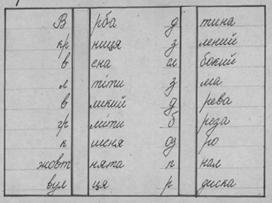 В рба д тина
кр ниця з лений
в сна гл бокий
л тіти з ма
в ликий д рева
гр міти б реза
к шеня оз ро
жовт нята п нал
вул ця р диска